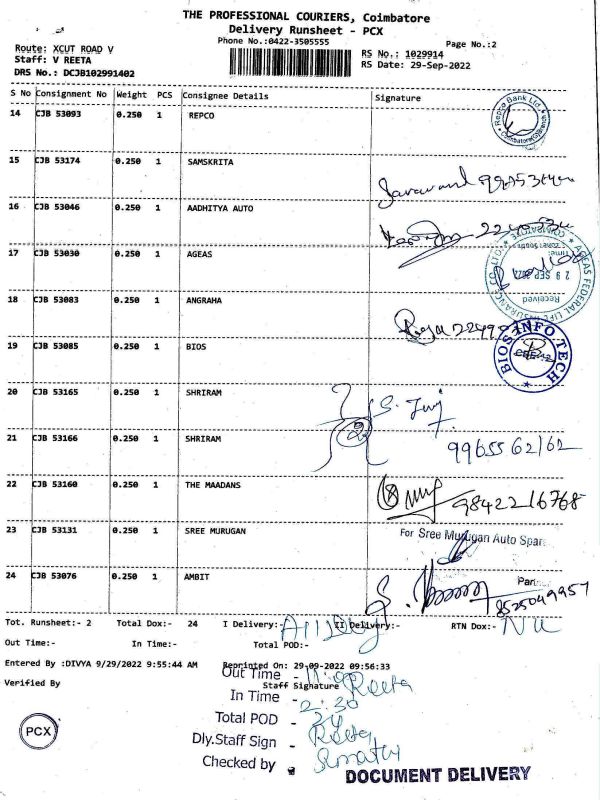 THE PROFESSIONAL COURIERS, Coimbatore
Delivery Runsheet - PCX
Phone No.:0422-3505555
Page No.:2
Route: XCUT ROAD V
Staff: V REETA
DRS No.: DCJB102991402
RS No.: 1029914
RS Date: 29-Sep-2022
S No Consignment No Weight PCS Consignee Details Signature
14 CJB 53093 0.250 1 REPCO
Repco Bank Ltd.
15 CJB 53174 0.250 1 SAMSKRITA
16 CJB 53046 0.250 1 AADHITYA AUTO
17 CJB 53030 0.250 1 AGEAS
AGEAS FEDERAL LIFE INSURANCE CO. LTD. * COIMBATORE *
29 SEP
Received
18 CJB 53083 0.250 1 ANGRAHA
19 CJB 53085 0.250 1 BIOS
BIOS INFO TECH
20 CJB 53165 0.250 1 SHRIRAM
21 CJB 53166 0.250 1 SHRIRAM
9965562162
22 CJB 53160 0.250 1 THE MAADANS
9842216768
23 CJB 53131 0.250 1 SREE MURUGAN
For Sree Murugan Auto Spar
24 CJB 53076 0.250 1 AMBIT
Part
8525049957
Tot. Runsheet:- 2 Total Dox:- 24 I Delivery:- II Delivery:- RTN Dox:- Nil
Out Time:- In Time:- Total POD:-
Entered By :DIVYA 9/29/2022 9:55:44 AM Reprinted On: 29-09-2022 09:56:33
Verified By Staff Signature
Out Time -
Reeta
In Time - 2:30
Total POD - 24
Dly.Staff Sign - Reeta
Checked by -
PCX
DOCUMENT DELIVERY